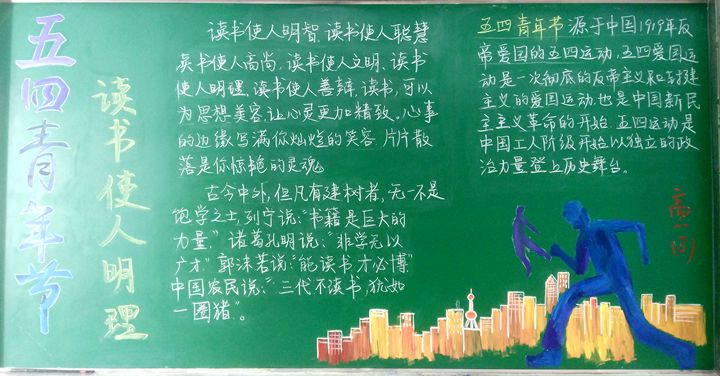 五四青年节
读书使人明理
读书使人明智,读书使人聪慧
读书使人高尚,读书使人文明,读书
使人明理,读书使人善辩,读书,可以
为思想美容,让心灵更加精致。心事
的边缘写满你灿烂的笑容,片片散
落是你惊艳的灵魂。
古今中外,但凡有建树者,无一不是
饱学之士,列宁说:“书籍是巨大的
力量”诸葛孔明说:“非学无以
广才”郭沫若说:“能读书才必博”
中国农民说:“三代不读书,犹如
一圈猪”。
五四青年节源于中国1919年反
帝爱国的五四运动,五四爱国运
动是一次彻底的反帝主义和封建
主义的爱国运动,也是中国新民
主主义革命的开始。五四运动是
中国工人阶级开始以独立的政
治力量登上历史舞台。
高一